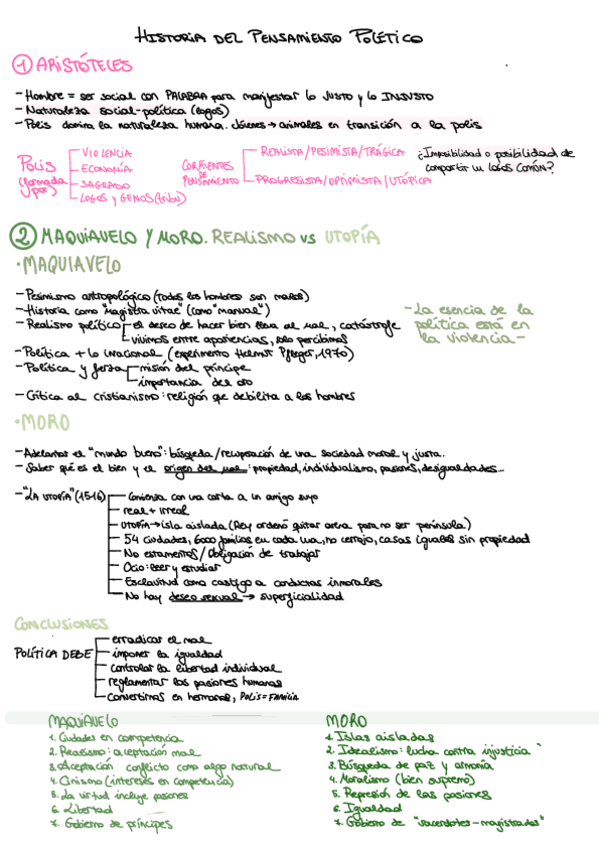 HISTORIA DEL PENSAMIENTO POLÍTICO
1 ARISTÓTELES
- Hombre = ser social con PALABRA para manifestar lo JUSTO y lo INJUSTO
- Naturaleza social-política (logos)
- Polis domina la naturaleza humana. Jóvenes → animales en transición a la polis
POLIS (formada por)
VIOLENCIA
ECONOMÍA
SAGRADO
LOGOS y GENOS (tribu)
CORRIENTES DE PENSAMIENTO
REALISTA/PESIMISTA/TRÁGICA
PROGRESISTA/OPTIMISTA/UTÓPICA
¿Imposibilidad o posibilidad de
compartir un logos común?
2 MAQUIAVELO Y MORO. REALISMO vs UTOPÍA
· MAQUIAVELO
- Pesimismo antropológico (todos los hombres son malos)
- Historia como "magistra vitae" (como "manual")
- Realismo político
el deseo de hacer bien lleva al mal, catástrofe
vivimos entre apariencias, solo percibimos
- Política + lo irracional (experimento Helmut Pfleger, 1970)
- Política y fuerza
misión del príncipe
importancia del oro
- Crítica al cristianismo: religión que debilita a los hombres
- La esencia de la
política está en
la violencia -
· MORO
- Adelantar el "mundo bueno": búsqueda/recuperación de una sociedad moral y justa.
- Saber qué es el bien y el origen del mal: propiedad, individualismo, pasiones, desigualdades...
- "LA UTOPÍA" (1516)
Comienza con una carta a un amigo suyo
real + irreal
UTOPÍA → isla aislada (Rey ordenó quitar arena para no ser península)
54 ciudades, 6000 familias en cada una, no cerrojo, casas iguales sin propiedad
No estamentos / Obligación de trabajar
Ocio: leer y estudiar
Esclavitud como castigo a conductas inmorales
No hay deseo sexual → superficialidad
CONCLUSIONES
POLÍTICA DEBE
erradicar el mal
imponer la igualdad
controlar la libertad individual
reglamentar las pasiones humanas
Convertirnos en hermanos, POLIS = FAMILIA
MAQUIAVELO
1. Ciudades en competencia
2. Realismo: aceptación mal
3. Aceptación conflicto como algo natural
4. Cinismo (intereses en competencia)
5. La virtud incluye pasiones
6. Libertad
7. Gobierno de príncipes
MORO
1. Islas aisladas
2. Idealismo: lucha contra injusticia
3. Búsqueda de paz y armonía
4. Moralismo (bien supremo)
5. Represión de las pasiones
6. Igualdad
7. Gobierno de "sacerdotes-magistrados"